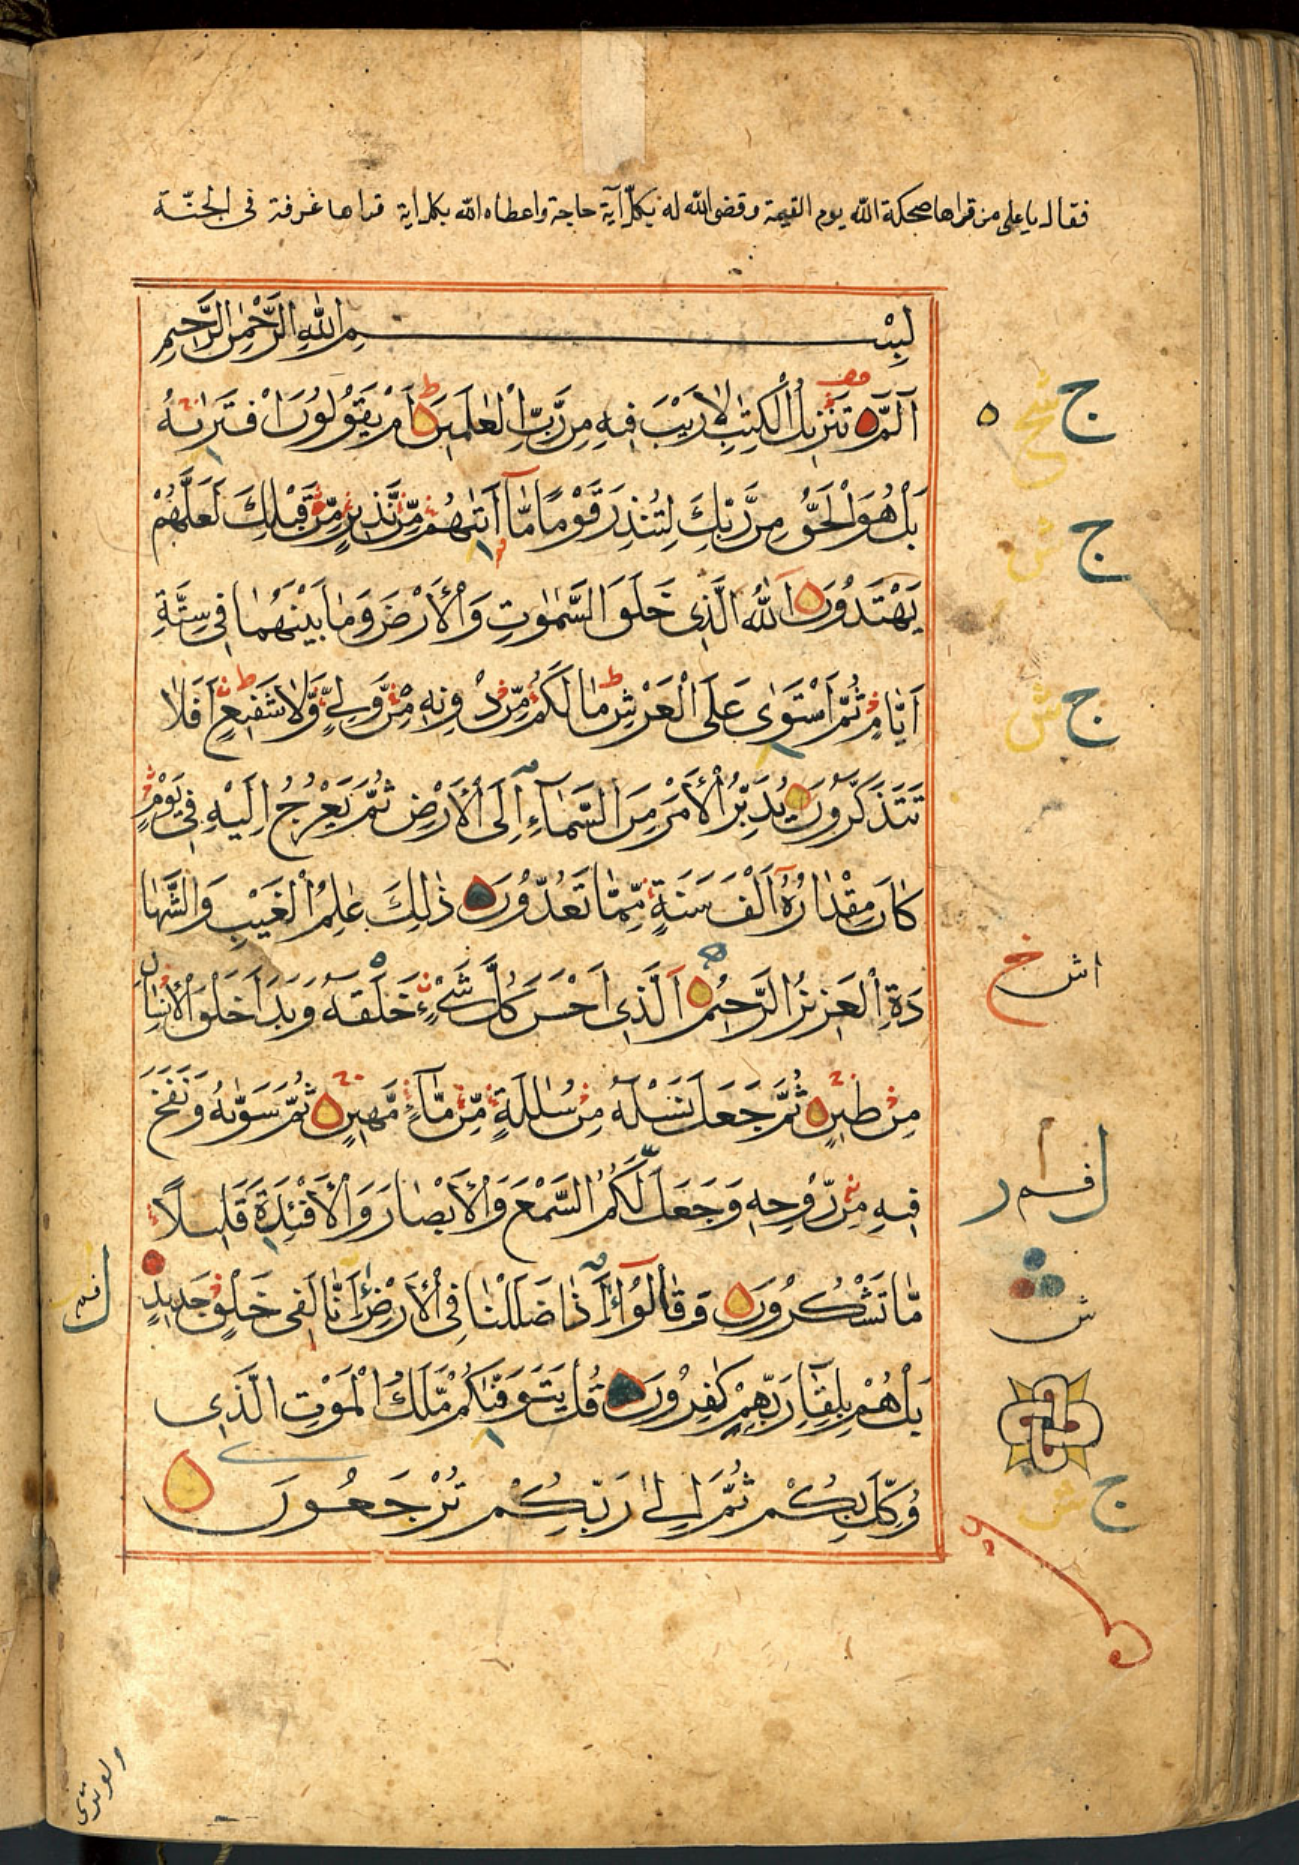 فقال يا على من قراها ضحكة الله يوم القيمة وقضى الله له بكل آية حاجة واعطاه الله بكل اية قراها غرفة فى الجنّة
بِسْمِ اللهِ الرَّحْمٰنِ الرَّحِيمِ
الٓمّٓ تَنْزِيلُ الْكِتٰبِ لَا رَيْبَ فِيهِ مِنْ رَّبِّ الْعٰلَمِينَ اَمْ يَقُولُونَ افْتَرٰىهُ
بَلْ هُوَ الْحَقُّ مِنْ رَّبِّكَ لِتُنْذِرَ قَوْمًا مَّآ اَتٰىهُمْ مِّنْ نَّذِيرٍ مِّنْ قَبْلِكَ لَعَلَّهُمْ
يَهْتَدُونَ اَللّٰهُ الَّذِى خَلَقَ السَّمٰوٰتِ وَالْاَرْضَ وَمَا بَيْنَهُمَا فِى سِتَّةِ
اَيَّامٍ ثُمَّ اسْتَوٰى عَلَى الْعَرْشِ مَا لَكُمْ مِّنْ دُونِهِ مِنْ وَّلِىٍّ وَّلَا شَفِيعٍ اَفَلَا
تَتَذَكَّرُونَ يُدَبِّرُ الْاَمْرَ مِنَ السَّمَآءِ اِلَى الْاَرْضِ ثُمَّ يَعْرُجُ اِلَيْهِ فِى يَوْمٍ
كَانَ مِقْدَارُهُٓ اَلْفَ سَنَةٍ مِّمَّا تَعُدُّونَ ذٰلِكَ عٰلِمُ الْغَيْبِ وَالشَّهَا
دَةِ الْعَزِيزُ الرَّحِيمُ اَلَّذِى اَحْسَنَ كُلَّ شَىْءٍ خَلَقَهُ وَبَدَاَ خَلْقَ الْاِنْسَانِ
مِنْ طِينٍ ثُمَّ جَعَلَ نَسْلَهُ مِنْ سُلٰلَةٍ مِّنْ مَّآءٍ مَّهِينٍ ثُمَّ سَوّٰىهُ وَنَفَخَ
فِيهِ مِنْ رُّوحِهِ وَجَعَلَ لَكُمُ السَّمْعَ وَالْاَبْصَارَ وَالْاَفْئِدَةَ قَلِيلًا
مَّا تَشْكُرُونَ وَقَالُوٓا ءَاِذَا ضَلَلْنَا فِى الْاَرْضِ ءَاِنَّا لَفِى خَلْقٍ جَدِيدٍ
بَلْ هُمْ بِلِقَآءِ رَبِّهِمْ كٰفِرُونَ قُلْ يَتَوَفّٰىكُمْ مَّلَكُ الْمَوْتِ الَّذِى
وُكِّلَ بِكُمْ ثُمَّ اِلٰى رَبِّكُمْ تُرْجَعُونَ
ج
ج ش
ج ش
اش خ
ش
ج ش